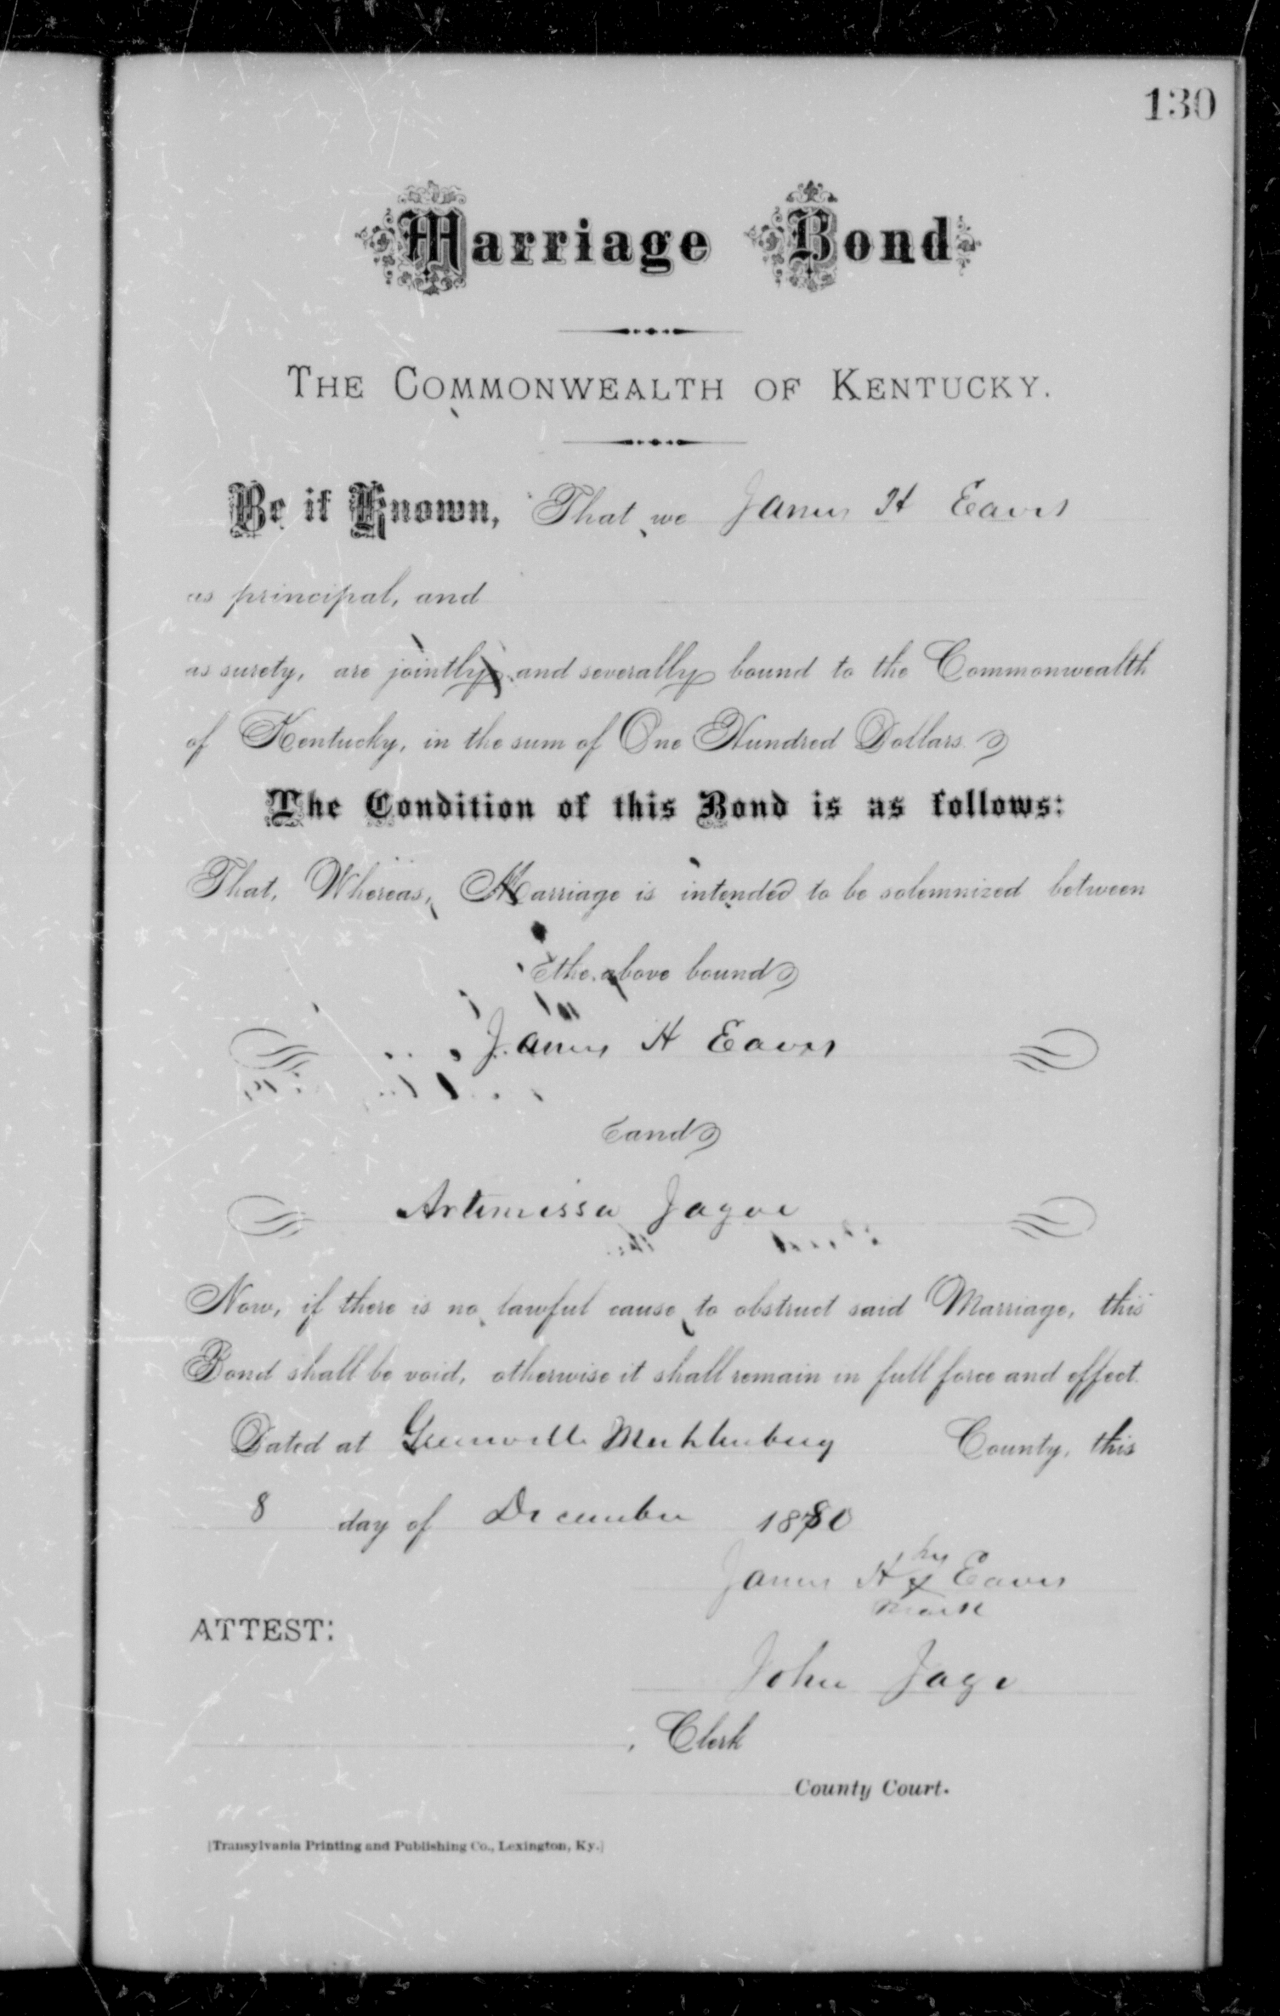 130
Marriage Bond
THE COMMONWEALTH OF KENTUCKY.
Be it Known, That we James H Eaves
as principal, and
as surety, are jointly and severally bound to the Commonwealth
of Kentucky, in the sum of One Hundred Dollars.
The Condition of this Bond is as follows:
That, Whereas, Marriage is intended to be solemnized between
the above bound
James H Eaves
and
Artimissa Jagoe
Now, if there is no lawful cause to obstruct said Marriage, this
Bond shall be void, otherwise it shall remain in full force and effect.
Dated at Greenville Muhlenberg County, this
8 day of December 1880
James H his x mark Eaves
ATTEST:
John Jago
, Clerk
County Court.
[Transylvania Printing and Publishing Co., Lexington, Ky.]